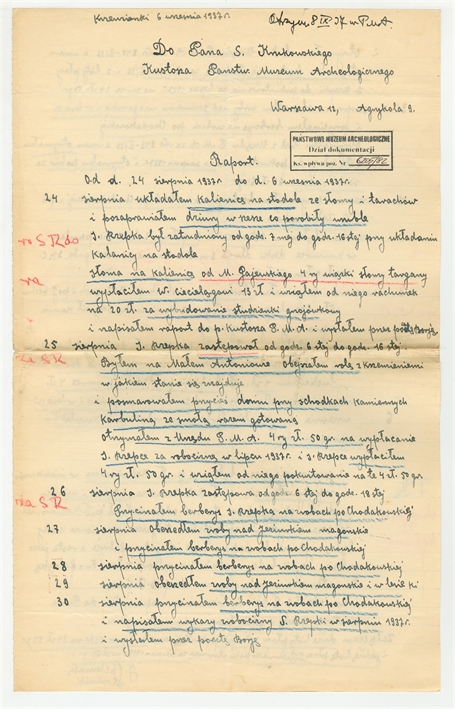 Krzemionki 6 września 1937 r.
Otrzym. 8 IX 37 w P.M.A.
Do Pana S. Krukowskiego
Kustosza Państw. Muzeum Archeologicznego
Warszawa 12, Agrykola 9.
PAŃSTWOWE MUZEUM ARCHEOLOGICZNE
Dział dokumentacji
Ks. wpływu poz. Nr
Raport.
Od d. 24 sierpnia 1937r. do d. 6 września 1937r.
24 sierpnia układałem kalienicę na stodole ze słomy i
i pozaprawiałem dziury w co porobiły wróble
J. Krepka był zatrudniony od godz. 7 mej do godz. 16 stej przy układaniu
Kalanicy na stodole
słoma na kalienicę od M. Gajewskiego 4 ry wiązki słomy targany
wypłaciłem W. Cieciełągowi 13 zł i wziąłem od niego rachunek
na 20 zł. za wybudowanie studzienki
i napisałem raport do p. Kustosza P.M.A. i wysłałem przez pocztę Borję
25 sierpnia J. Krepka zastępował od godz. 6 stej do godz. 16 stej
Byłem na Małem Antoniowie Obejrzałem rolę z Krzemieniami
w jakiem stanie się znajduje
i posmarowałem przyciś domu przy schodkach Kamiennych
Karbuliną ze smołą razem gotowaną
otrzymałem z Urzędu P.M.A. 4 ry zł. 50 gr. na wypłacanie
J. Krepce za robociznę w lipcu 1937r. i J. Krepce wypłaciłem
4 ry zł. 50 gr i wziąłem od niego pokwitowanie na te 4 zł. 50 gr.
26 sierpnia J. Krepka zastępował od godz. 6 stej do godz. 18 stej
Przycinałem berberys J. Krepka na robach po Chodakowskiej
27 sierpnia Obszedłem roby nad
i przycinałem berberys na robach po Chodakowskiej
28 sierpnia przycinałem berberys na robach po Chodakowskiej
29 sierpnia obszedłem roby nad i w lesie
30 sierpnia przycinałem berberys na robach po Chodakowskiej
i napisałem wykazy robocizny J. Krepki w sierpniu 1937r.
i wysłałem przez pocztę Borję